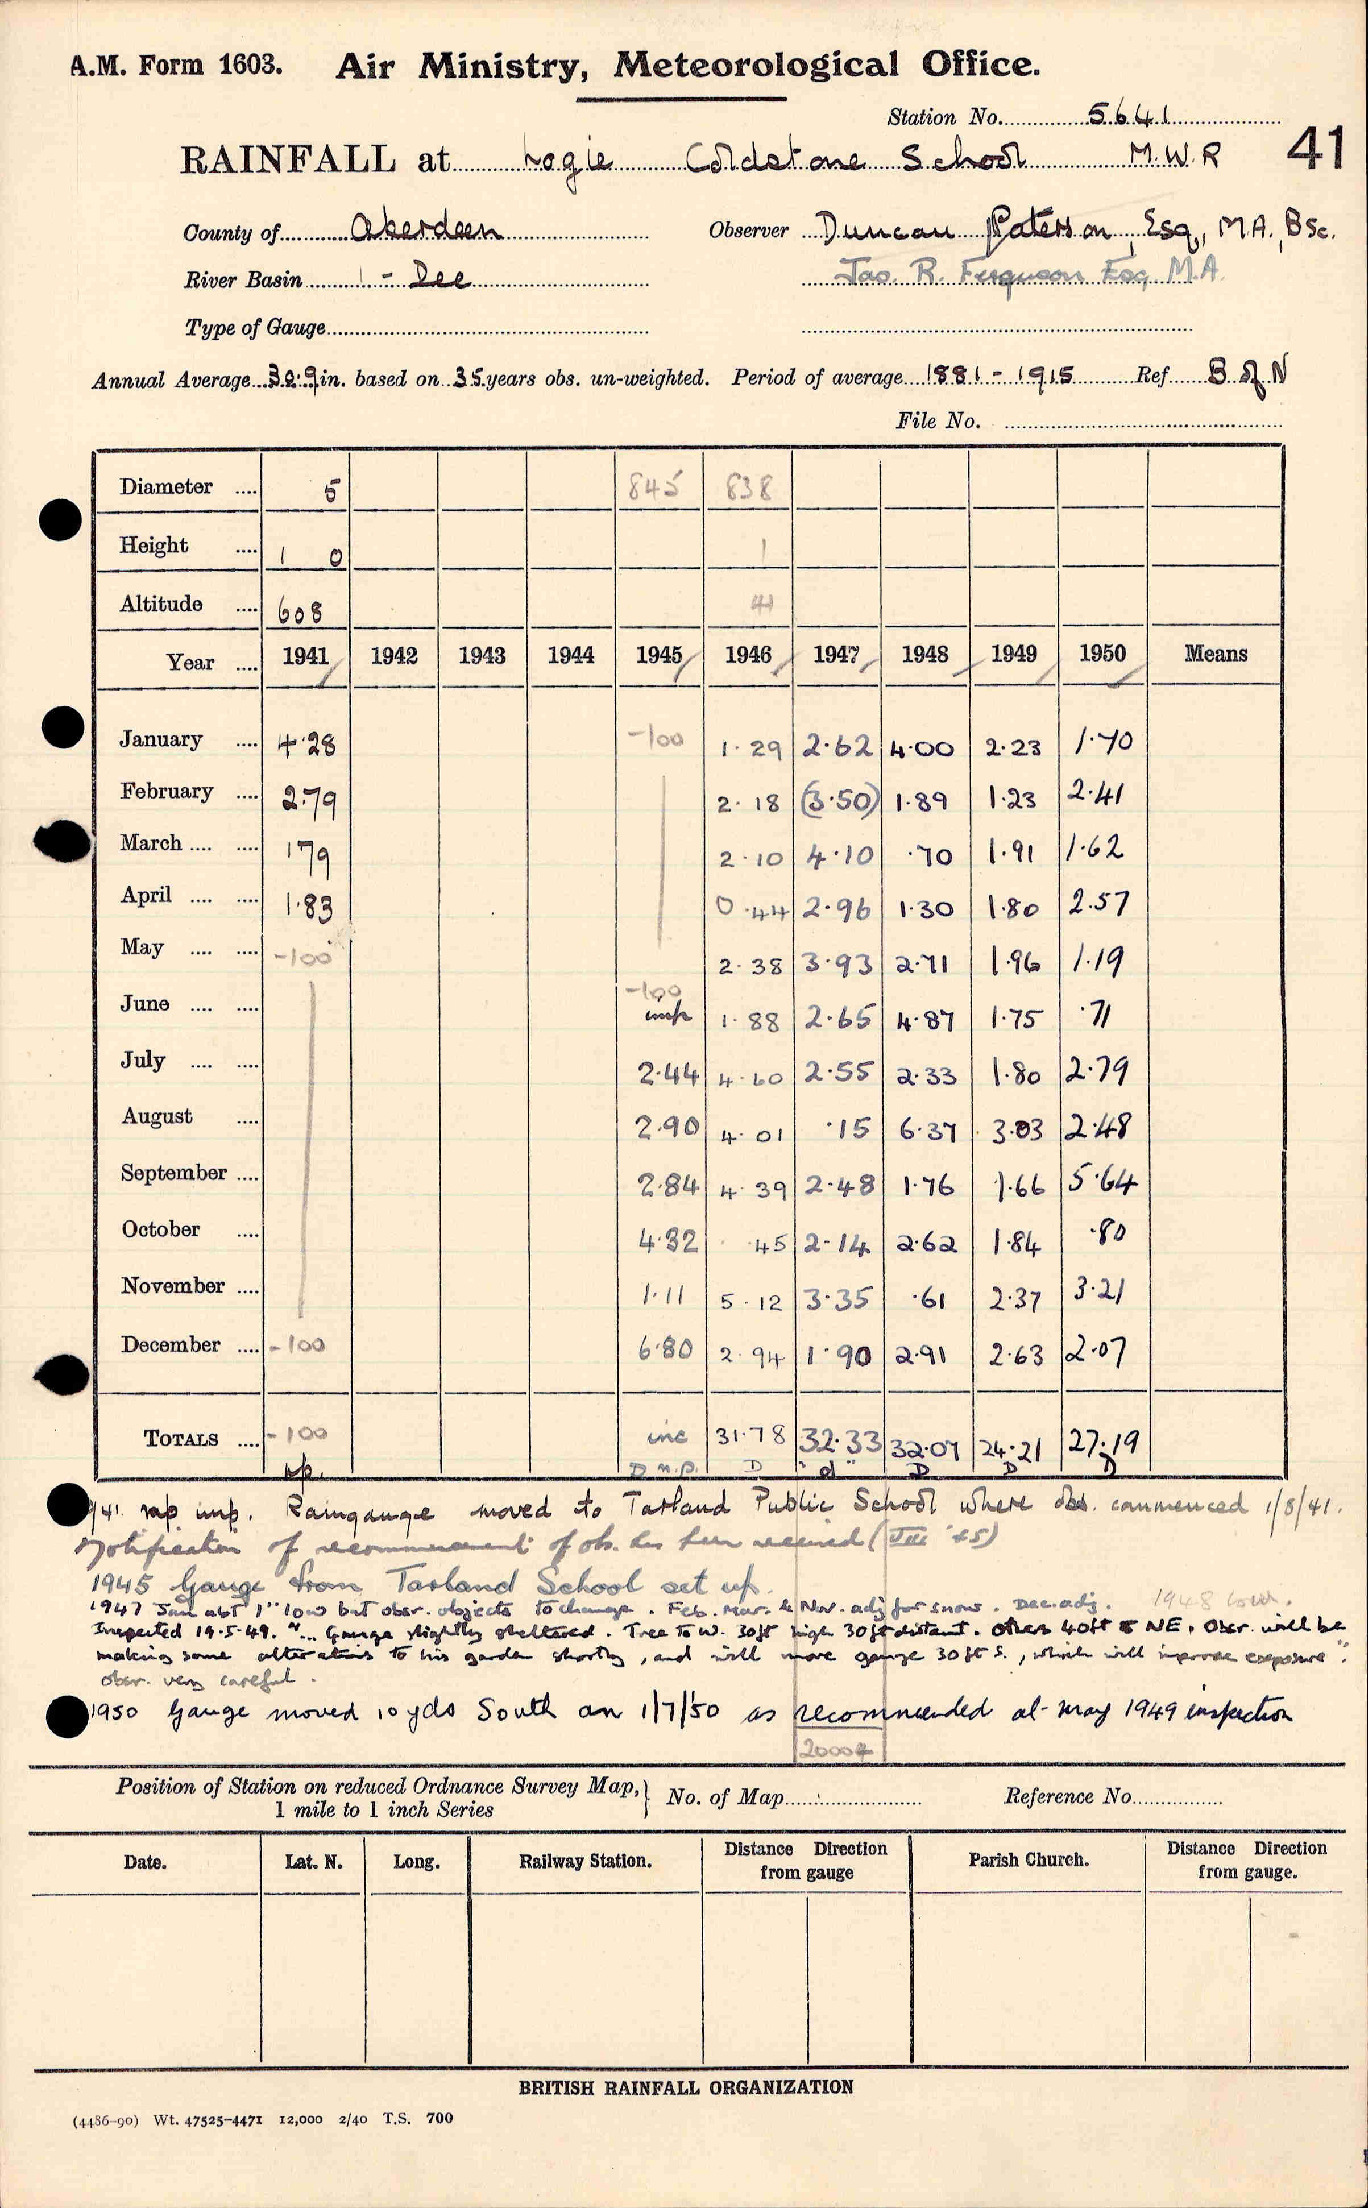 A.M. Form 1603. Air Ministry, Meteorological Office.
Station No. 5641
RAINFALL at Logie Coldstone School M.W.R 41
County of Aberdeen Observer Duncan Paterson, Esq., M.A., BSc.
River Basin 1 - Dee Jas. R. Ferguson Esq M.A.
Type of Gauge
Annual Average 30.9 in. based on 35 years obs. un-weighted. Period of average 1881 - 1915 Ref B of N
File No.
Diameter .... 5 845 838
Height .... 1 0 1
Altitude .... 608 41
Year .... 1941 1942 1943 1944 1945 1946 1947 1948 1949 1950 Means
January .... 4.28 -100 1.29 2.62 4.00 2.23 1.70
February .... 2.79 2.18 (3.50) 1.89 1.23 2.41
March .... .... 179 2.10 4.10 .70 1.91 1.62
April .... .... 1.83 0.44 2.96 1.30 1.80 2.57
May .... .... -100 2.38 3.93 2.71 1.96 1.19
June .... .... -100 imp 1.88 2.65 4.87 1.75 .71
July .... .... 2.44 4.60 2.55 2.33 1.80 2.79
August .... 2.90 4.01 .15 6.37 3.03 2.48
September .... 2.84 4.39 2.48 1.76 1.66 5.64
October .... 4.32 .45 2.14 2.62 1.84 .80
November .... 1.11 5.12 3.35 .61 2.37 3.21
December .... -100 6.80 2.94 1.90 2.91 2.63 2.07
TOTALS .... -100 inc 31.78 32.33 32.07 24.21 27.19
np. D n.p. D "d" D D D
/41 imp. Raingauge moved to Tarland Public School where obs. commenced 1/8/41.
Notification of recommencement of obs. has been received (VIII '45)
1945 Gauge from Tarland School set up.
1947 Jan abt 1" low but obsr. objects to change. Feb. Mar. & Nov. adj for snow. Dec. adj. 1948 low.
Inspected 19.5.49. "... Gauge slightly sheltered. Tree to W. 30ft high 30ft distant. Others 40ft to NE. Obsr. will be
making some alterations to his garden shortly, and will move gauge 30ft S., which will improve exposure".
obsr. very careful.
1950 Gauge moved 10 yds South on 1/7/50 as recommended at May 1949 inspection
Position of Station on reduced Ordnance Survey Map,} No. of Map Reference No.
1 mile to 1 inch Series
Date. Lat. N. Long. Railway Station. Distance Direction from gauge Parish Church. Distance Direction from gauge.
BRITISH RAINFALL ORGANIZATION
(4486-90) Wt. 47525-4471 12,000 2/40 T.S. 700